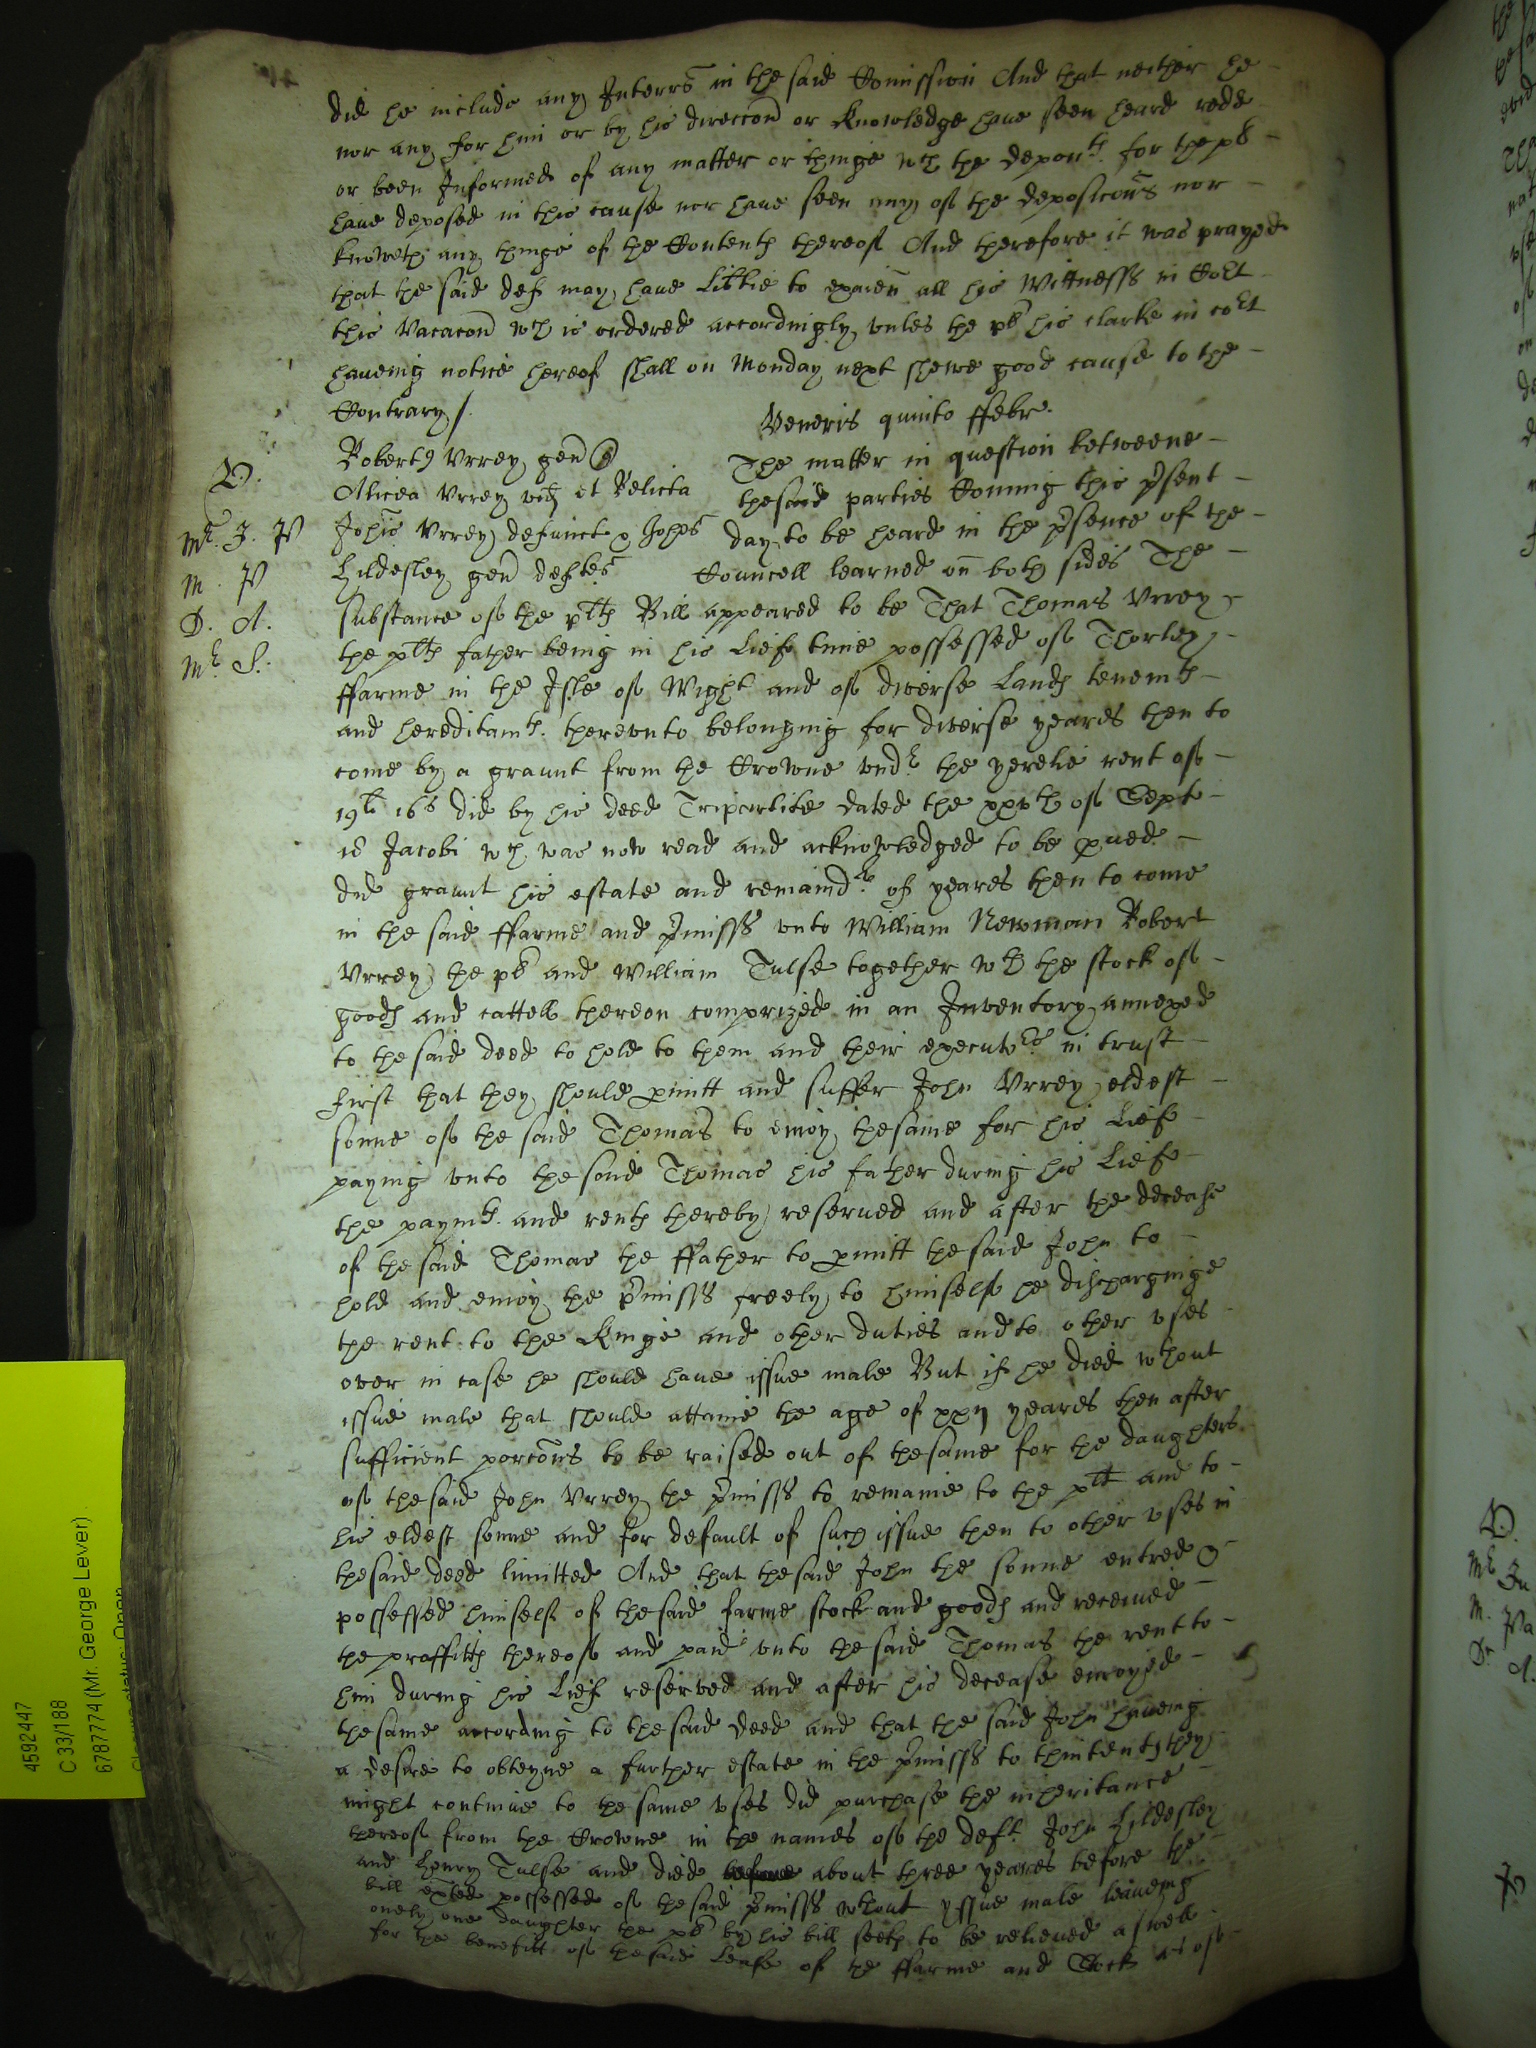 did he include any Interrs in the said Comission And that neither he
nor any for him or by his direccon or knowledge have seen heard redd
or been Informed of any matter or thinge wch the depontes for the pl
have deposed in this cause nor have seen any of the deposicons nor
knoweth any thinge of the Contents thereof And therefore it was prayed
that the said def may have Libtie to examen all his Wittnesses in Cort
this Vacacon wch is ordered accordingly unles the pl his clarke in cort
haveing notice hereof shall on Monday next shewe good cause to the
Contrary /.
Veneris quinto ffebr.
Robertus Vrrey gen
Alicea Vrrey vid et Relicta
Johis Vrrey defunct & Johes
Hildesley gen deftes
The matter in question betweene
the said parties Coming this psent
day to be heard in the psence of the
Councell learned on both sides The
D.
Mr. J. P
M. P
D. A.
Mr. S.
substance of the plts Bill appeared to be That Thomas Vrrey
the plts father being in his Liefe time possessed of Thorley
ffarme in the Isle of Wight and of diverse Lands tenemts
and hereditamts. therevnto belonging for diverse yeares then to
come by a graunt from the Crowne vndr the yerelie rent of
19li 16s did by his deed Tripartite dated the xxvth of Sept
16 Jacobi wch was now read and acknowledged to be pved
did graunt his estate and remaindr of yeares then to come
in the said ffarme and pmisses vnto William Newman Robert
Vrrey the pl and William Tulse together wth the stock of
goods and cattells thereon comprized in an Inventory annexed
to the said deed to hold to them and their executors in trust
first that they should pmitt and suffer John Vrrey eldest
sonne of the said Thomas to enioy the same for his Liefe
paying vnto the said Thomas his father during his Liefe
the paymts. and rents thereby reserved and after the decease
of the said Thomas the ffather to pmitt the said John to
hold and enioy the pmisses freely to himself he discharginge
the rent to the Kinge and other duties and to other vses
over in case he should have issue male But if he died wthout
issue male that should attaine the age of xxij yeares then after
sufficient porcons to be raised out of the same for the daughters
of the said John Vrrey the pmisses to remaine to the plt and to
his eldest sonne and for default of such issue then to other vses in
the said deed limitted And that the said John the sonne entred &
possessed himself of the said farme stock and goods and received
the proffitts thereof and paid vnto the said Thomas the rent to
him during his Lief reserved and after his decease enioyed
the same according to the said deed and that the said John haveing
a desire to obteyne a further estate in the pmisses to thintent they
might continue to the same vses did purchase the inheritance
thereof from the Crowne in the names of the deft John Hildesley
and Henry Tulse and died before about three yeares before the
bill exted possessed of the said pmisses wthout yssue male leaveing
onely one daughter the pl by his bill seeth to be relieved aswell
for the benefitt of the said Lease of the ffarme and Stock as of
4592447
C 33/188
6787774 (Mr. George Lever)